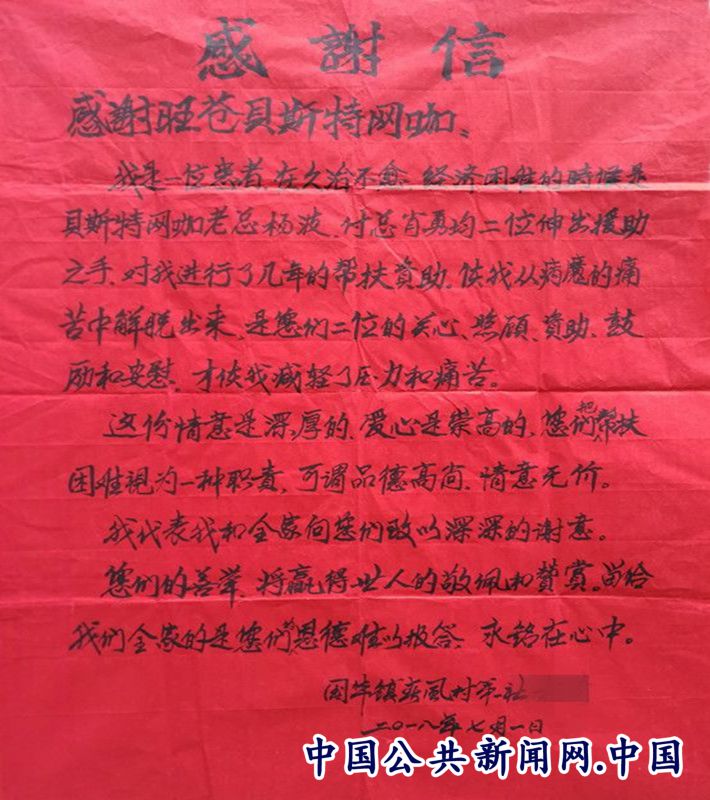 感謝信
感謝旺苍貝斯特网咖、
我是一位患者，在久治不愈，经济困难的時候是
貝斯特网咖老总杨波，付总肖勇均二位伸出援助
之手，对我进行了几年的帮扶資助，使我从病魔的痛
苦中解脱出来，是您们二位的关心、照顧、資助、鼓
励和安慰，才使我减轻了压力和痛苦。
这份情意是深厚的，爱心是崇高的，您们把帮扶
困难視为一种职責，可谓品德高尚，情意无价。
我代表我和全家向您们致以深深的谢意。
您们的善举，将赢得世人的敬佩和赞赏。留给
我们全家的是您们的恩德难以报答，永铭在心中。
国华镇新风村第一社
二〇一八年七月一日
中国公共新闻网.中国